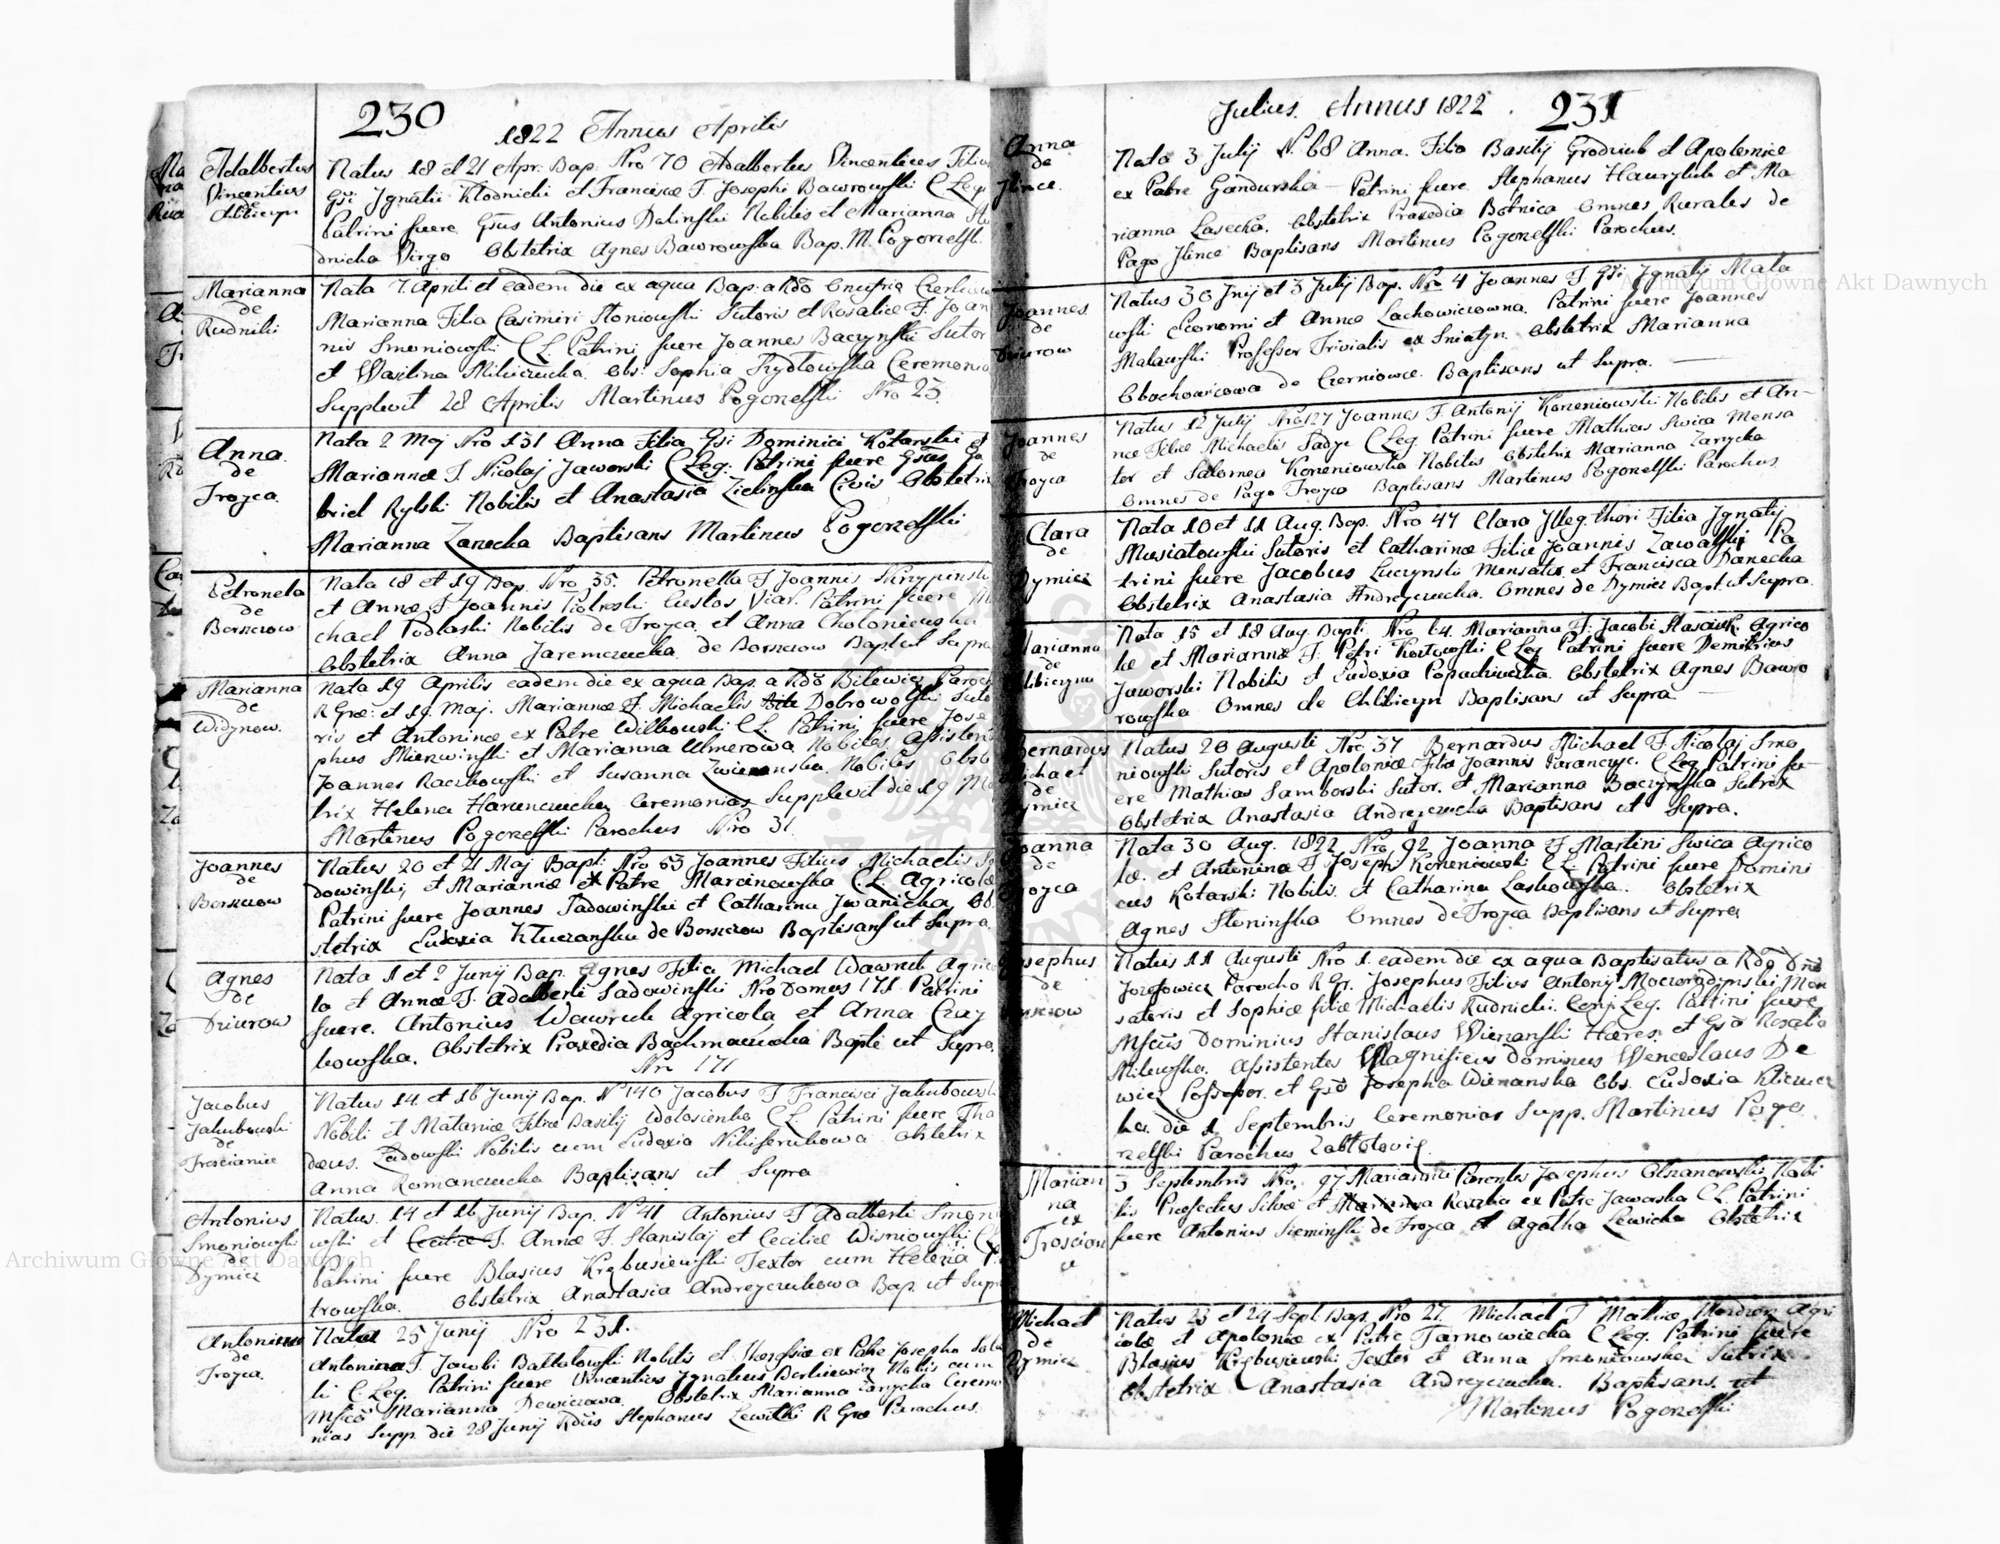 230
1822 Annus Aprilis
Adalbertus
Vincentius
de
Chlibiczyn
Natus 18 et 21 Apr. Bap. Nro 70 Adalbertus Vincentius Filius
Gsi Jgnatii Klodnicki et Franciscæ F. Josephi Baworowski C. Leg
Patrini fuere Gsus Antonius Dalinski Nobilis et Marianna
dnicka Virgo Obstetrix Agnes Baworowska Bap. M. Pogonelski
Marianna
de
Rudniki
Nata 7. Aprili et eadem die ex aqua Bap. a Rdo Onufrio
Marianna Filia Casimiri Stoniowski Sutoris et Rosaliæ F. Joan
nis Smoniowski C. L. Patrini fuere Joannes Baczynski Sutor
et Wasilina Obs: Sophia Ceremonia
Supplevit 28 Aprilis Martinus Pogonelski Nro 23.
Anna
de
Troyca
Nata 2 Maj Nro 131 Anna Filia Gsi Dominici Kotarski et
Mariannæ F. Nicolaj Jaworski C. Leg: Patrini fuere Gsus Ga
briel Rylski Nobilis et Anastasia Zielinska Civis Obstetrix
Marianna Zarecka Baptisans Martinus Pogonelski
Petronela
de
Borszczow
Nata 18 et 19 Bap. Nro 35. Petronella F. Joannis Skrypinski
et Annæ F. Joannis Piotroski Custos Viar. Patrini fuere Mi
chael Podlaski Nobilis de Troyca et Anna Choloniewska
Obstetrix Anna Jaremczucka de Borszczow Bapt. ut Supra
Marianna
de
Widynow.
Nata 19 Aprilis eadem die ex aqua Bap. a Rdo Bilewicz Paroch
R Græ: et 19. Maj. Mariannæ F. Michaelis Dobrowolski Suto
ris et Antoninæ ex Patre Wilkowski C. L. Patrini fuere Jose
phus Mierzwinski et Marianna Ulmerowa Nobiles. Assistent
Joannes Raczkowski et Susanna Nobiles Obste
trix Helena Harenczucka Ceremonias Supplevit die 19 Ma
Martinus Pogonelski Parochus Nro 31.
Joannes
de
Borszczow
Natus 20 et 21 Maj Bapt: Nro 63 Joannes Filius Michaelis Sa
dowinski, et Mariannæ ex Patre Marcinowska C. L. Agricolæ
Patrini fuere Joannes Sadowinski et Catharina Jwanicka Ob
stetrix Eudoxia Kluczanska de Borszczow Baptisans ut Supra
Agnes
de
Dziurow
Nata 1 et 2 Junij Bap. Agnes Filia Michael Wawruk Agrico
la et Annæ F. Adalberti Sadowinski Nro Domus 171 Patrini
fuere. Antonius Wawruk Agricola et Anna Czay
kowska. Obstetrix Praxedia Bachmaczucka Bapti ut Supra.
Nro 171
Jacobus
Jakubowski
de
Troscianiec
Natus 14 et 16 Junij Bap. N 140 Jacobus F Francisci Jakubowski
Nobili et Matariæ Filiæ Basilij Wolosienka C. L. Patrini fuere Tha
deus. Zadowski Nobilis cum Eudoxia Nikiferukowa Obstetrix
Anna Romanczucka Baptisans ut Supra
Antonius
Smoniowski
de
Dymicz
Natus. 14 et 16 Junij Bap. N 41 Antonius F Adalberti Smon
wski et Ceciliæ F. Annæ F. Stanislaj et Ceciliæ Wisniowski C
Patrini fuere Blasius Krębusiewski Textor cum Helena
trowska. Obstetrix Anastasia Andreyczukowa Bap. ut Supra
Antonina
de
Troyca
Nata 25 Junij Nro 231.
Antonina F. Jacobi Battalowski Nobilis et Theresiæ ex Patre Josepho
ki C. Leg. Patrini fuere Vincentius Jgnatius Berkiewicz Nobilis cum
Marianna Dewiczowa. Obstetrix Marianna Zarycka Ceremo
nias Supp. die 28 Junij Rdus Stephanus Lewicki R Græ Parochus.
Julius. Annus 1822. 231
Anna
de
Jlince.
Nata 3 Julij N. 68 Anna. Filia Basilij Grodziuk et Apoloniæ
ex Patre Gandurska Patrini fuere Stephanus Hawryluk et Ma
rianna Lasecka. Obstetrix Praxedia Botnica Omnes Rurales de
Pago Jlince Baptisans Martinus Pogonelski Parochus.
Joannes
de
Dziurow
Natus 30 Jnij et 3 Julij Bap. Nro 4 Joannes F. Gsi Jgnatij Mala
wski Economi et Annæ Lachowiczowna. Patrini fuere Joannes
Malawski Professor Trivialis ex Sniatyn. Obstetrix Marianna
Obochowiczowa de Czerniowce. Baptisans ut Supra.
Joannes
de
Troyca
Natus 12 Julij Nro 127 Joannes F. Antonij Koneniowski Nobilis et An-
næ Filiæ Michaelis Sadye C. Leg. Patrini fuere Mathias Swica Mensa
tor et Salomea Koneniowska Nobilis Obstetrix Marianna Zarycka
Omnes de Pago Troyca Baptisans Martinus Pogonelski Parochus
Clara
de
Dymicz
Nata 10 et 11 Aug. Bap. Nro 47 Clara Jlleg. thori Filia Jgnatij
Musiatowski Sutoris et Catharinæ Filiæ Joannis Zawalski Pa
trini fuere Jacobus Luczynski Mensator et Francisca Danecka
Obstetrix Anastasia Andreyczucka. Omnes de Dymicz Bapt. ut Supra.
Marianna
de
Chlibiczyn
Nata 15 et 18 Aug. Bapt: Nro 64. Marianna F. Jacobi Stasiuk. Agrico
læ et Mariannæ F. Petri C Leg Patrini fuere Demitrius
Jaworski Nobilis et Eudoxia Popadiuczka Obstetrix Agnes Bawo
rowska Omnes de Chlibiczyn Baptisans ut Supra
Bernardus
Michael
de
Dymicz
Natus 20 Augusti Nro 37 Bernardus Michael F. Nicolaj Smo
niowski Sutoris et Apoloniæ Filiæ Joannis C. Leg Patrini fu-
ere Mathias Samborski Sutor. et Marianna Baczynska Sutrix
Obstetrix Anastasia Andreyczucka Baptisans ut Supra.
Joanna
de
Troyca
Nata 30 Aug. 1822 Nro 92 Joanna F Martini Swica Agrico
læ. et Antonina F Josephi Koneniowski C. L. Patrini fuere Domini
cus Kotarski Nobilis. et Catharina Laskowska. Obstetrix
Agnes Steninska Omnes de Troyca Baptisans ut Supra
Josephus
de
Borszczow
Natus 11 Augusti Nro 1. eadem die ex aqua Baptisatus a Rdo Dno
Jozefowicz Parocho R Gr. Josephus Filius Antonij Men
satoris et Sophiæ filiæ Michaelis Rudnicki. Conj. Leg. Patrini fuere
Mfcus Dominus Stanislaus Wienanski Hæres. et Gsa Rosalia
Milewska. Assistentes Magnificus Dominus Wenceslaus De
wicz Possessor. et Gsa Josepha Wienanska Obs. Eudoxia
ka. die 1 Septembris Ceremonias Supp. Martinus Pogo
nelski Parochus Zablotovis
Marian
na
ex
Troscian
ec
3 Septembris Nro. 97 Mariannæ Parentes Josephus Olszanowski Nobi
lis Præfectus Silvæ et Marianna ex Patre Jaworska C. L. Patrini
fuere Antonius Sieminski de Troyca et Agatha Lewicka Obstetrix
Michael
de
Dymicz
Natus 23 et 24 Sept. Bap. Nro 27. Michael F Mathiæ Agri
colæ et Apoloniæ ex Patre Tarnowiecka C Leg. Patrini fuere
Blasius Krębusiewski Textor et Anna Smoniowska Sutrix
Obstetrix Anastasia Andreyczucka. Baptisans. ut
Martinus Pogonelski
Archiwum Główne Akt Dawnych
Archiwum Główne Akt Dawnych